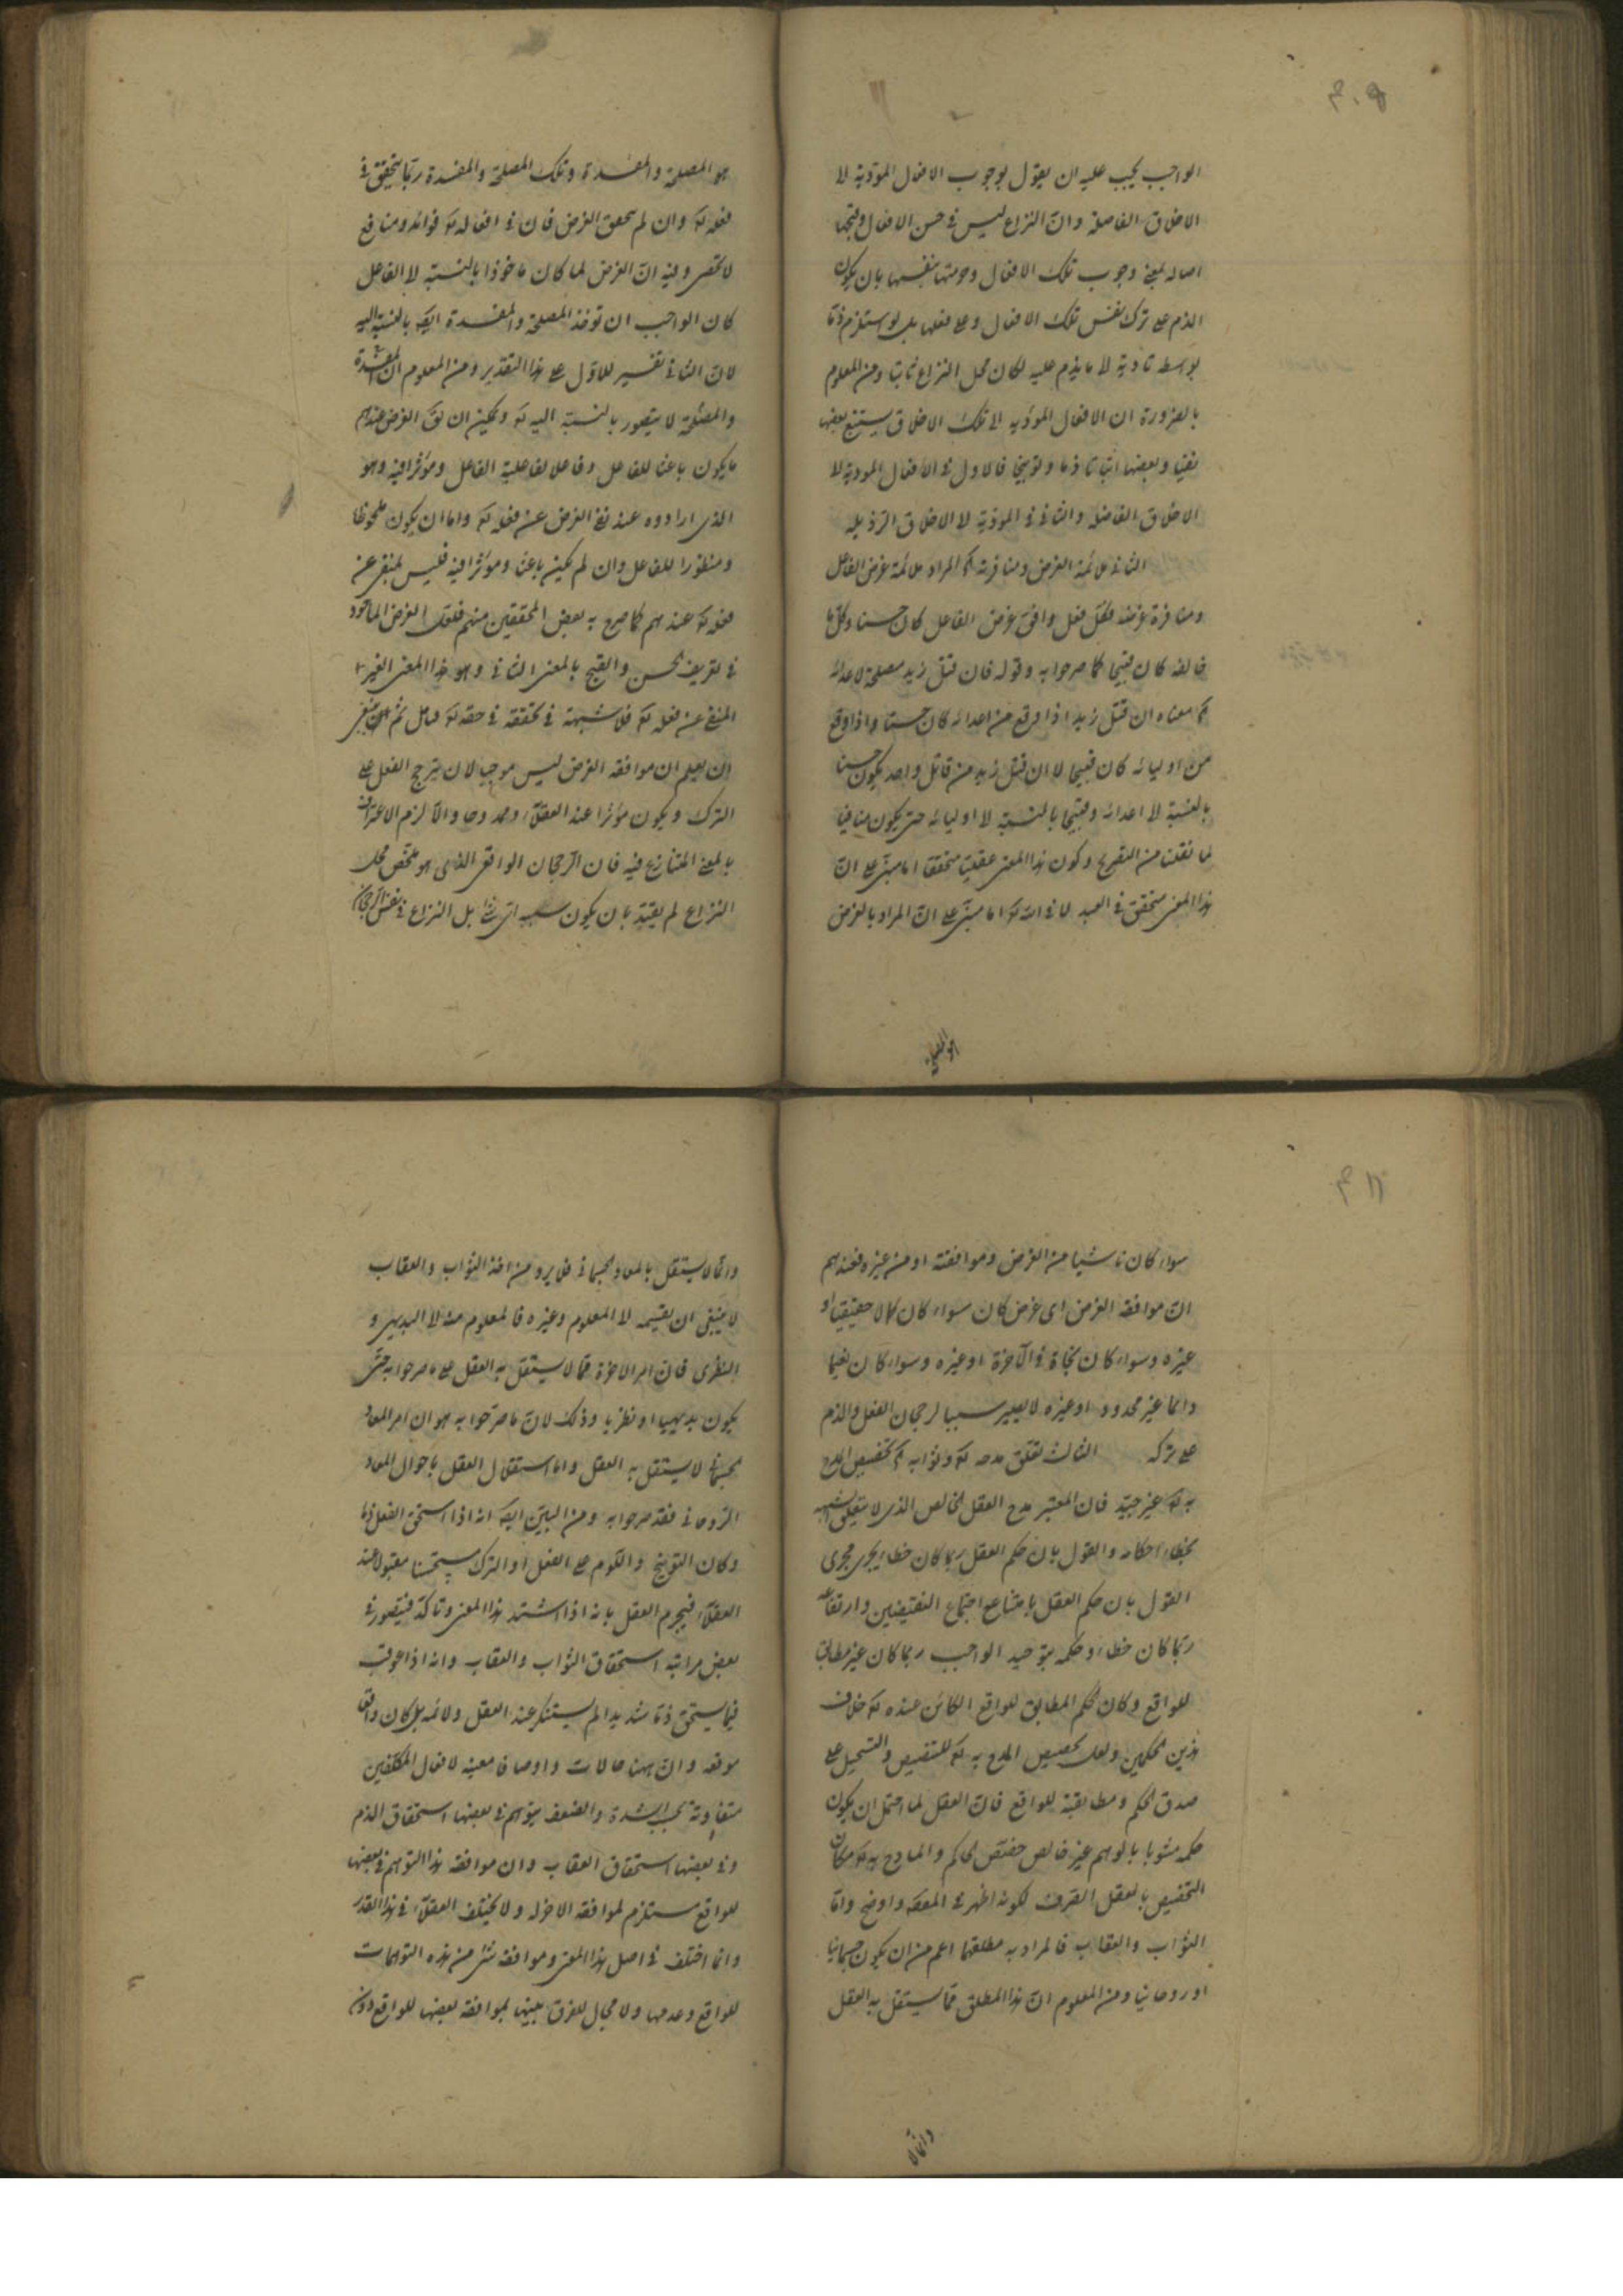 الواجب يجب عليه ان يقول بوجوب الافعال المؤدية لا
الاخلاق الفاضلة وانّ النزاع ليس فى حسن الافعال وقبحها
اصالة بمعنى وجوب تلك الافعال وحرمتها بنفسها بان يكون
الذم على ترك نفس تلك الافعال وعلى فعلها بل لو استلزم ذمّا
بواسطة تأدية لا ما يذم عليه لكان محل النزاع ثابتا ومن المعلوم
بالضرورة ان الافعال المؤدية الى تلك الاخلاق يستتبع بعضها
نفيا وبعضها اثباتا ذما وتوبيخا فالاول فى الافعال المودية لا
الاخلاق الفاضلة والثانى فى المؤدّية لا الاخلاق الرذيلة
الثانى ملائمة الغرض ومنافرته كم المراد ملائمة غرض الفاعل
ومنافرة غرضه فكل فعل وافق غرض الفاعل كان حسنا وكل ما
خالفه كان قبيحا كما صرحوا به وقوله فان قتل زيد مصلحة لاعدائه
كم معناه ان قتل زيد اذا وقع من اعدائه كان حسنا واذا وقع
من اوليائه كان قبيحا لا ان قتل زيد من قاتل واحد يكون حسنا
بالنسبة لا اعدائه وقبيحا بالنسبة لا اوليائه حتى يكون منافيا
لما نقلنا من التصريح وكون هذا المعنى عقليّا متحققا اما مبنى على انّ
هذا المعنى متحقق فى العبد لا فى الله كه اما مبنّى على انّ المراد بالغرض
هو المصلحة
هو المصلحة والمفسدة وتلك المصلحة والمفسدة ربّما يتحقق فى
فعله كه وان لم يتحقق الغرض فان فى افعاله كه فوائد ومنافع
لا تحصى وفيه انّ الغرض لما كان ماخوذا بالنسبة لا الفاعل
كان الواجب ان توخذ المصلحة والمفسدة ايضه بالنسبة اليه
لانّ الثانى تفسير للاوّل على هذا التقدير ومن المعلوم ان المفسدة
والمصلحة لا يتصور بالنسبة اليه كه ويمكن ان يق الغرض عندهم
ما يكون باعثا للفاعل وفاعلا لفاعلية الفاعل ومؤثرا فيه وهو
الذى ارادوه عند نفى الغرض عن فعله كه واما ان يكون ملحوظا
ومنظورا للفاعل وان لم يكن باعثا ومؤثرا فيه فليس بمنفى عن
فعله كه عندهم كما صرح به بعض المحققين منهم فلعل الغرض الماخوذ
فى تعريف الحسن والقبح بالمعنى الثانى وهو هذا المعنى الغير
المنفى عن فعله كه فلا شبهة فى تحققه فى حقه كه تامل ثم انه ينبغى
ان يعلم ان موافقة الغرض ليس موجبا لان يترجح الفعل على
الترك ويكون مؤثرا عند العقلاء وممدوحا والّا لزم الاعتراف
بالمعنى المتنازع فيه فان الرجحان الواقعى الذى هو ملخّص محل
النزاع لم يقيّد بان يكون سببه اىّ شئ بل النزاع فى نفس الرجحان
سواء كان ناشيا من الغرض وموافقته او من غيره فعندهم
انّ موافقة الغرض اى غرض كان سواء كان كمالا حقيقيا او
غيره وسواء كان نجاة فى الآخرة او غيره وسواء كان نعيما
دائما غير محدود او غيره لا يصير سببا لرجحان الفعل والذم
على تركه الثالث تعلق مدحه كه وثوابه كم تخصيص المدح
به كه غير جيّد فان المعتبر مدح العقل الخالص الذى لا يتعلق الشبهة
بخطاء احكامه والقول بان حكم العقل ربما كان خطا يجرى مجرى
القول بان حكم العقل بامتناع اجتماع النقيضين وارتفاعه
ربّما كان خطاء وحكمه بتوحيد الواجب ربما كان غير مطابق
للواقع وكان الحكم المطابق للواقع الكائن عنده كه خلاف
هذين الحكمين ولعل تخصيص المدح به كه للتنصيص والتسجيل على
صدق الحكم ومطابقته للواقع فان العقل لما احتمل ان يكون
حكمه مشوبا بالوهم غير خالص خصّص الحاكم والمادح به كه مكان
التخصيص بالعقل الصّرف لكونه اظهر فى المعصه واوضح وامّا
الثواب والعقاب فالمراد به مطلقهما اعم من ان يكون جسمانيا
او روحانيا ومن المعلوم انّ هذا المطلق ممّا يستقل به العقل
وانّما لا
وانّما لا يستقل بالمعاد الجسمانى فلا يرد من اخذ الثواب والعقاب
لا ينبغى ان يقسمه لا المعلوم وغيره فالمعلوم منه لا البديهى و
النظرى فان امر الاخرة ممّا لا يستقل به العقل على ما صرحوا به حتّى
يكون بديهيا او نظريا وذلك لانّ ما صرّحوا به هو ان امر المعاد
الجسمانى لا يستقل به العقل واما استقلال العقل باحوال المعاد
الروحانى فقد صرحوا به ومن البيّن ايضه انه اذا استحق الفعل ذمّا
وكان التوبيخ واللوم على الفعل او الترك مستحسنا مقبولا عند
العقلاء فيجزم العقل بانه اذا اشتد هذا المعنى وتاكّد فيتصور فى
بعض مراتبه استحقاق الثواب والعقاب وانه اذا عوقب
فيما يستحق ذمّا شديدا لم يستنكر عند العقل ولائمه بل كان واقعا
موقعه وانّ ههنا حالات واوصافا معينة لافعال المكلّفين
متفاوتة بحسب الشدة والضعف يتوهم فى بعضها استحقاق الذم
وفى بعضها استحقاق العقاب وان موافقة هذا التوهم فى بعضها
للواقع مستلزم لموافقة الاخر له ولا يختلف العقلاء فى هذا القدر
وانما اختلف فى اصل هذا المعنى وموافقة شئ من هذه التوهمات
للواقع وعدمها ولا مجال للفرق بينها بموافقة بعضها للواقع دون